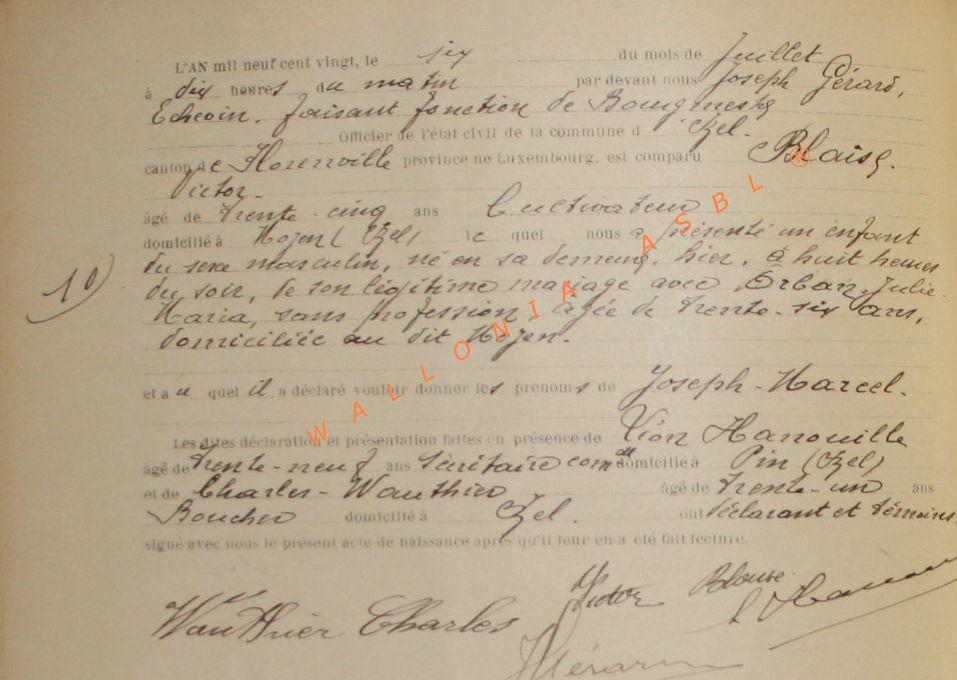 L'AN mil neuf cent vingt, le six du mois de Juillet
à dix heures du matin par devant nous Joseph Gérard,
Echevin, faisant fonction de Bourgmestre
Officier de l'état civil de la commune d'Izel.
canton de Florenville province de Luxembourg, est comparu Blaise
Victor.
âgé de trente-cinq ans Cultivateur
domicilié à Moyen (Izel) lequel nous a présenté un enfant
du sexe masculin, né en sa demeure, hier, à huit heures
du soir, de son légitime mariage avec Orban, Julie
Maria, sans profession, âgée de trente-six ans,
domiciliée au dit Moyen.
10
et auquel il a déclaré vouloir donner les prenoms de Joseph-Marcel.
Les dites déclaration et présentation faites en présence de Léon Hanouille
âgé de trente-neuf ans Secrétaire comal domicilié à Pin (Izel)
et de Charles-Wauthier âgé de trente-un ans
Boucher domicilié à Izel. ont déclarant et témoins
signé avec nous le présent acte de naissance après qu'il leur en a été fait lecture.
Wauthier Charles Victor Blaise
J Gérard
WALLONIA ASBL ®